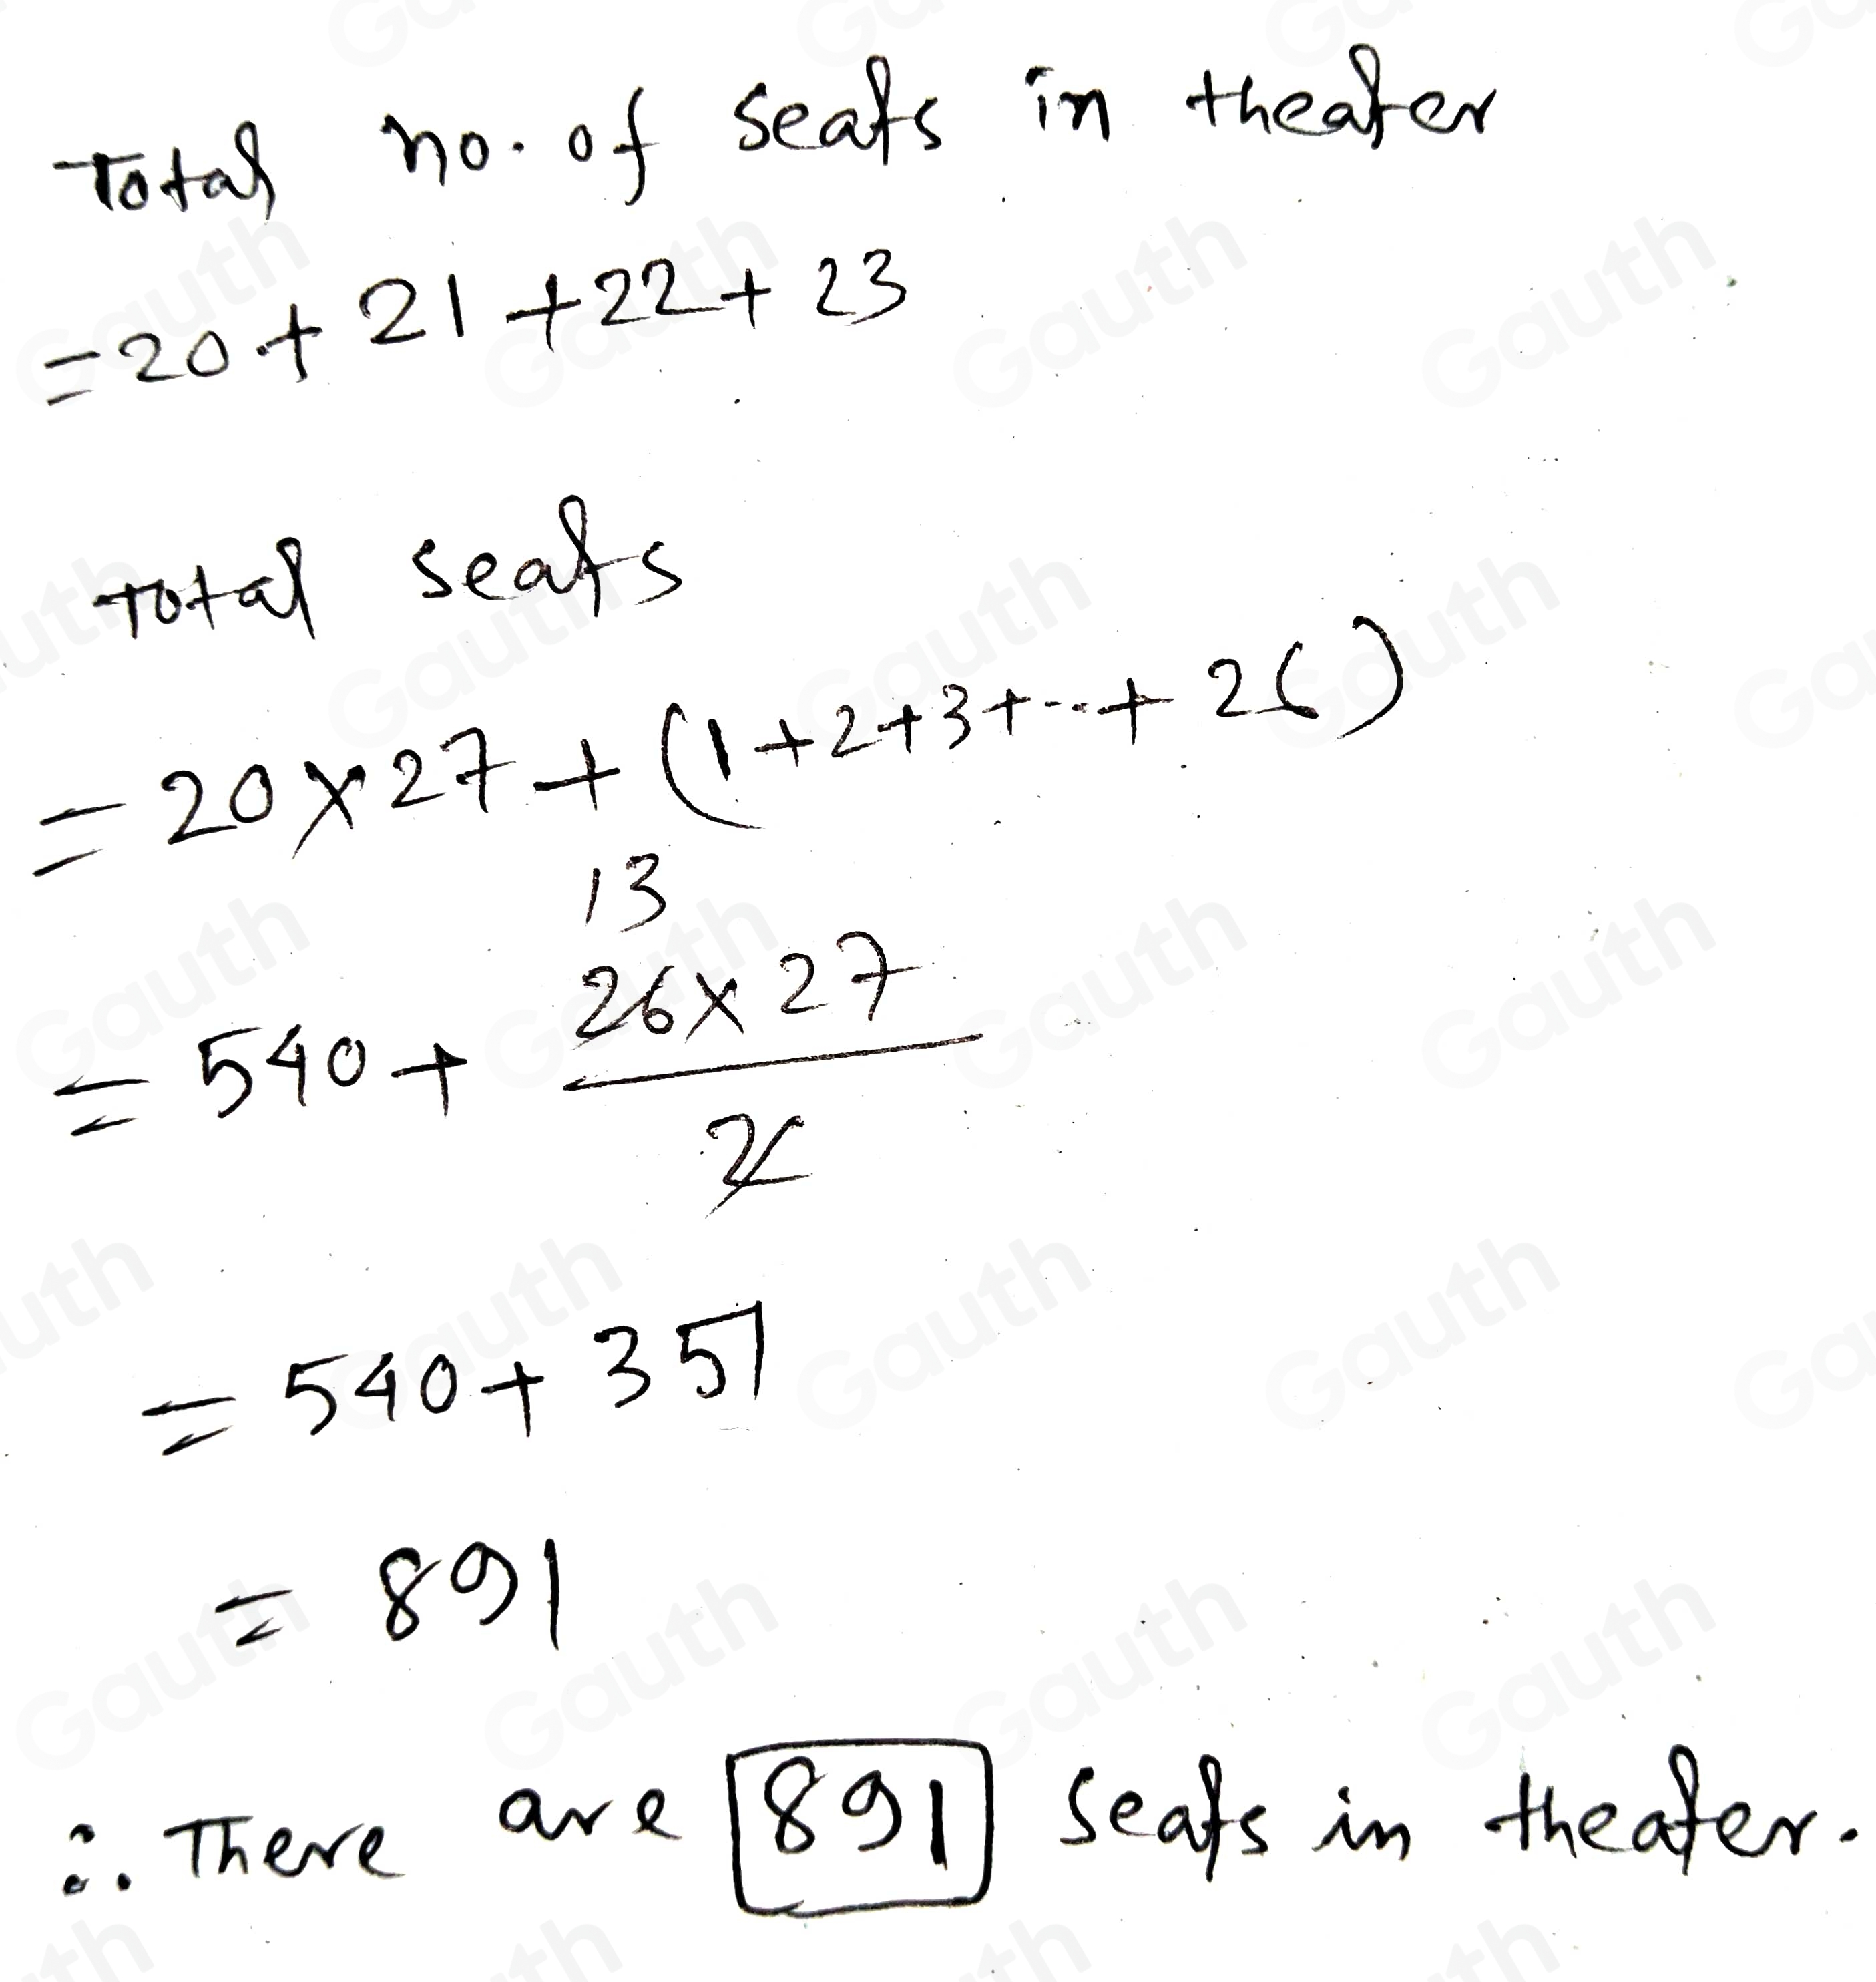 Total no. of seats in theater
= 20 + 21 + 22 + 23
Total seats
= 20 × 27 + (1 + 2 + 3 + ... + 26)
13
= 540 + 26 × 27 / 2
= 540 + 351
= 891
∴ There are 891 seats in theater.